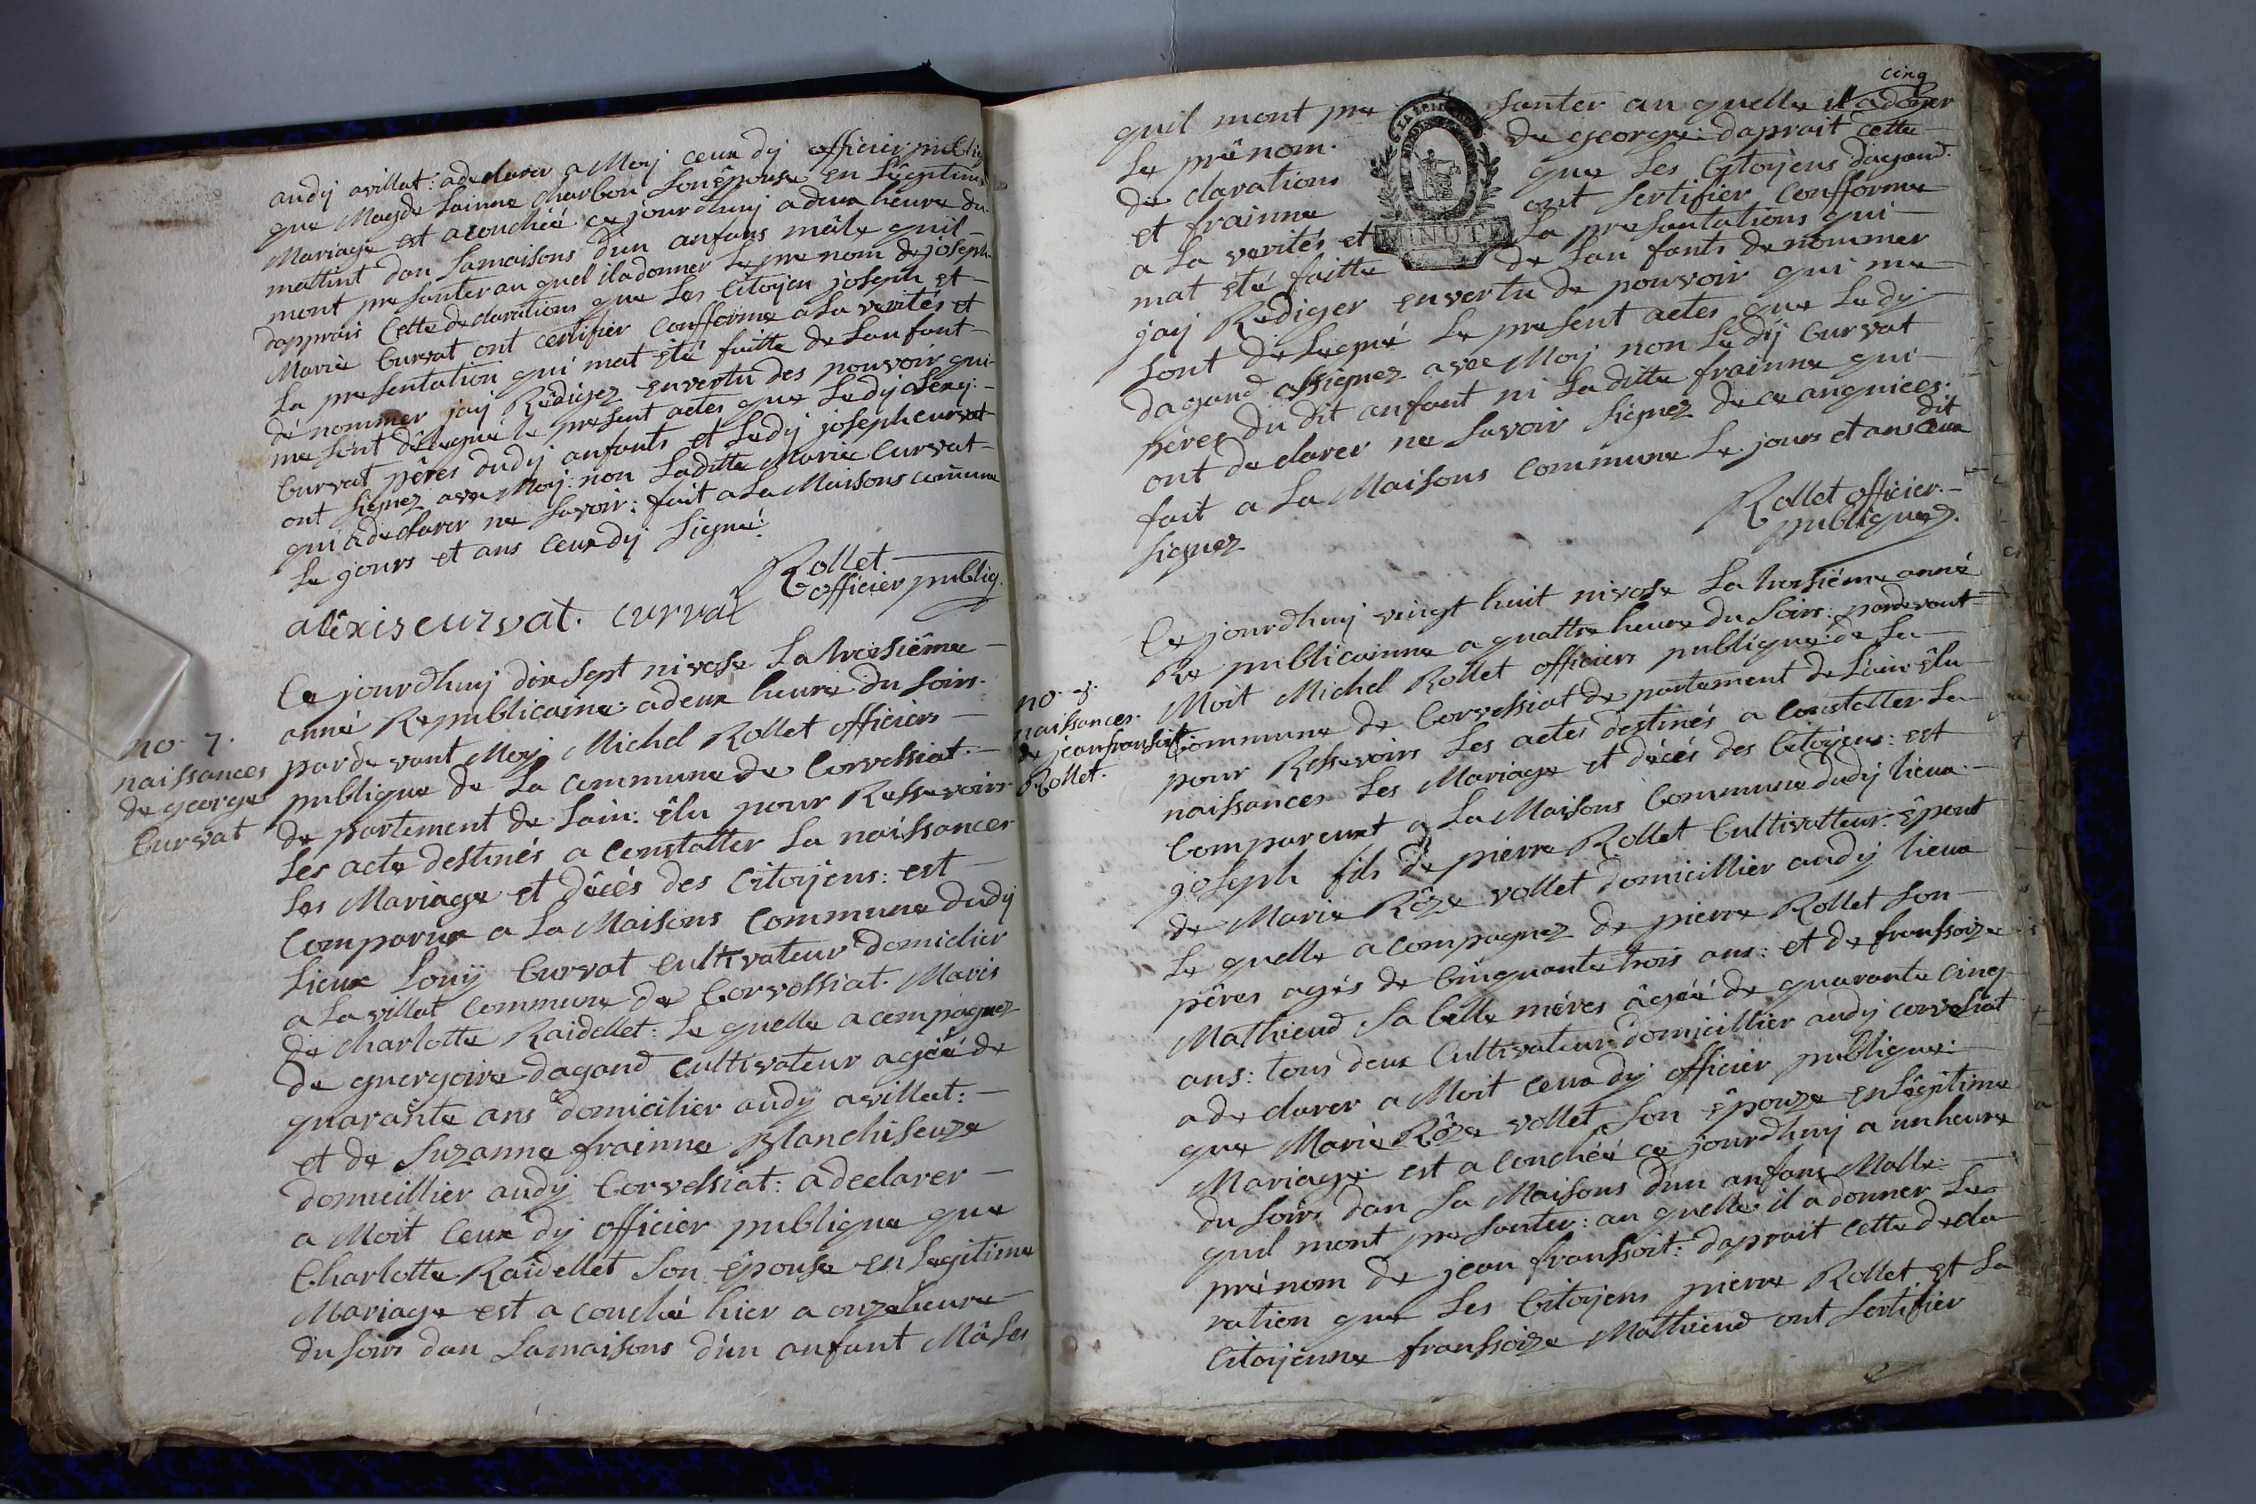 audij avillat: adeclarer a Moij ceux dij officier publiq
que Magdelainne Charbon son épouse en Legitime
Mariage est acouchéé ce jourdhuij a deux heure du
mattint dan samaisons dun anfans mâle quil
mont presanter au quel il a donner Le prenom de joseph
dapprais Cette declarations que Les Citoijen joseph et
Marie Curvat ont certifier Confforme a La verités et
La presentation qui mat été faitte de Lanfant
dé nommer jaij Rédigez en vertu des pouvoir qui
me sont délegué le present actes que Ledij alexij
Curvat péres dudij anfants et Ledij joseph curvat
ont signez avec Moij: non Laditte Marie Curvat
qui a declarer ne savoir: fait a La Maisons commune
Le jours et ans ceux dij signé:
Rollet
officier publiq.
alêxis curvat. curvat
no 7.
naissances
de george
Curvat
Ce jourdhuij dix sept nivose La troisiéme
anné Republicaine: a deux heure du soirs
pardevant Moij Michel Rollet officiers
publique de La commune de Corvessiat
departement de Lain: élu pour Ressevoirs
Les acte destinés a Constatter La naissances
Les Mariage et décés des Citoijens: est
Comparux a La Maisons Commune dudij
Lieux Louij Curvat cultivateur domicilier
a La villat commune de Corvessiat. Maris
de Charlotte Raidellet: Le quelle acompagnez
de guergoire dagand cultivateur agéé de
quarante ans domicilier audij avillat:
et de Suzanne frainne Blanchiseuze
domicillier audij Corvessiat: adeclarer
a Moit Ceux dij officier publique que
Charlotte Raidellet Son épouse en Legitime
Mariage est a couché hier a onze heure
du soirs dan Lamaisons d'un anfant Mâles
cinq
quil mont pre santer au quelle il a doner
Le prénom. de george: daprait cette
de clarations que Les Citoijens dagand
et frainne ont sertifier Confforme
a La verités et La presantations qui
mat été faitte de Lan fants denommer
jaij Rediger en vertu de pouvoir qui me
sont délegué Le present actes que Ledij
dagand assignez avec Moij non Ledij Curvat
péres du dit anfant ni Laditte frainne qui
ont declarer ne savoir signez de ce anquices.
fait a La Maisons Commune Le jours et ans ceux dit
signez
Rollet officier
publique.
no 8.
naissances.
de jean fransoit
Rollet.
Ce jourdhuij vingt huit nivose La troisiéme anné
Republicainne a quattre heure du soirs: pardevant
Moit Michel Rollet officiers publique de La
Commune de Corvessiat departement de Lain élu
pour Ressevoirs Les actes destinés a Constatter La
naissances Les Mariage et décés des Citoijens: est
Comparuxt a La Maisons Commune dudij lieux
joseph fils de pierre Rollet Cultivatteur. épout
de Marie Rôze vollet domicillier audij lieux
Le quelle acompagnez de pierre Rollet son
péres agés de Cinquante trois ans: et de franssoize
Mathieud. sa belle méres âgéé de quarante cinq
ans: tous deux Cultivateur domicillier audij corvessiat
adeclarer a Moit ceux dij officier publique:
que Marie Rôze vollet son épouze en Légitime
Mariage est acouchéé ce jourdhuij a un heure
du soirs dan sa Maisons dun anfans Malle:
quil mont presanter: au quelle il a donner Le
prénom de jean franssoit: daprait cette decla
ration que Les Citoijens pierre Rollet et La
Citoijenne franssoize Mathieud ont sertifier
MINUTE